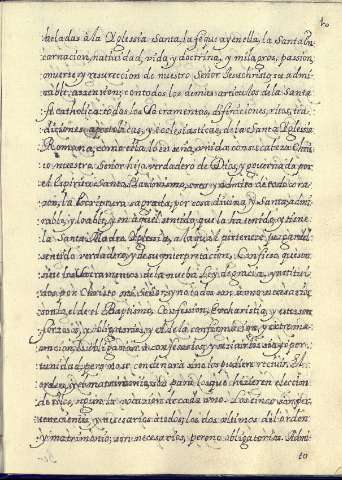 heladas à la Yglessia Santa, la fé que ay en ella, la Santa En
carnacion, natiuidad, vida, y doctrina, y milagros, passion,
muerte, y resureccion de nuestro Señor Jesuchristo su admi
rable, assension; con todos los demas articulos de la Santa
fé catholica: todos los Sacramentos, difiniciones, ritos, tra
diciones apostolicas, y ecclesiasticas, de la Santa Yglesia
Romana, como ella lo enseña, vnida con su cabeza Chris
to nuestro Señor hijo verdadero de Dios, y gouernada por
el Espiritu Santo. Y assimismo, creo y admito de todo cora
zon, la Escriptura sagrada, por cosa diuina, y Santa, admi
rable, y loable, y en aquel sentido, que la ha tenido, y tiene
la Santa Madre Yglesia, à la qual pertenece juzgar del
sentido verdadero, y de su interpretacion. Confieso que son
siete los Sacramentos de la nueba Ley de gracia, ynstitui
dos por Christo mi Señor, y no todos son
el del Baptismo, Confession, Eucharistia, y estos son
forzosos, y obligatorios, y el de la confirmacion, y extrema
uncion,
tunidad, pero no se condenarà sino los pudiere recuir. El
orden, y el matrimonio, solo para los que hizieren eleccion
de ellos, segun la vocacion de cada vno. Los cinco son per
tenecientes, y necesarios à todos, los dos vltimos del orden
y matrimonio, son necesarios, pero no obligatorios. Admi
to